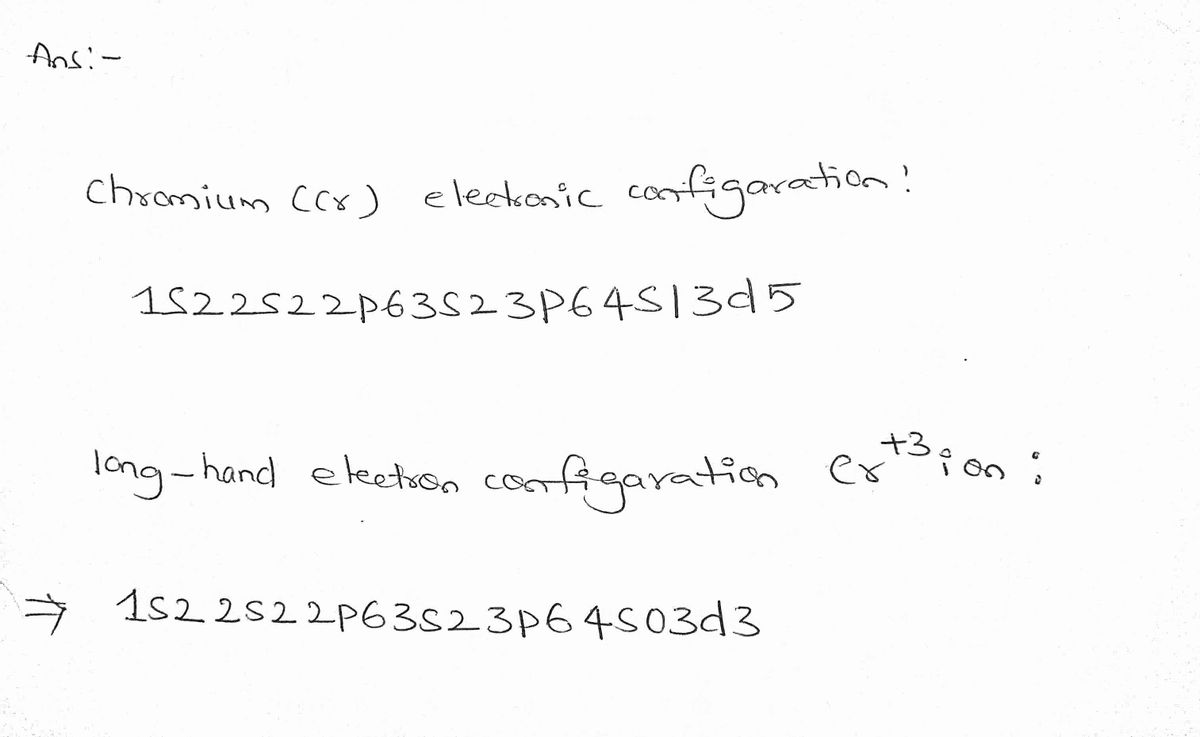 Ans:-
Chromium (Cr) electronic configaration:
1S22S22P63S23P64S13d5
long-hand electron configaration Cr+3 ion :
⇒ 1S22S22P63S23P64S03d3